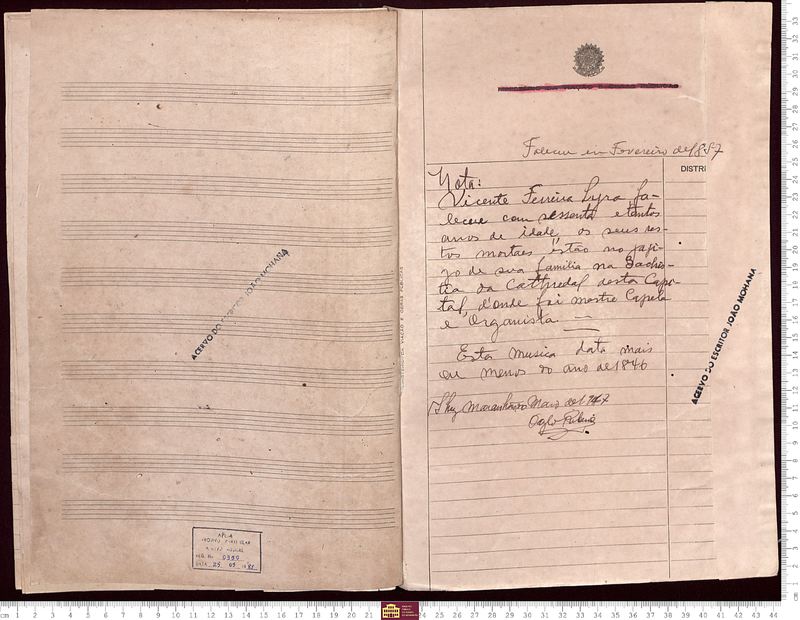 ACERVO DO ESCRITOR JOÃO MOHANA
APEM
0390
DATA 25 09
Faleceu em Fevereiro de 1857
DISTRI
Nota:
Vicente Ferreira Lyra fa-
leceu com sessenta e tantos
annos de idade, os seus res-
tos mortaes estão no jazi-
go de sua familia na Sachris-
tia da Cathedral desta Capi-
tal, d'onde foi mestre Capela
e Organista.
Esta musica data mais
ou menos do anno de 1846
S. Luiz Maranhão Março de
ACERVO DO ESCRITOR JOÃO MOHANA